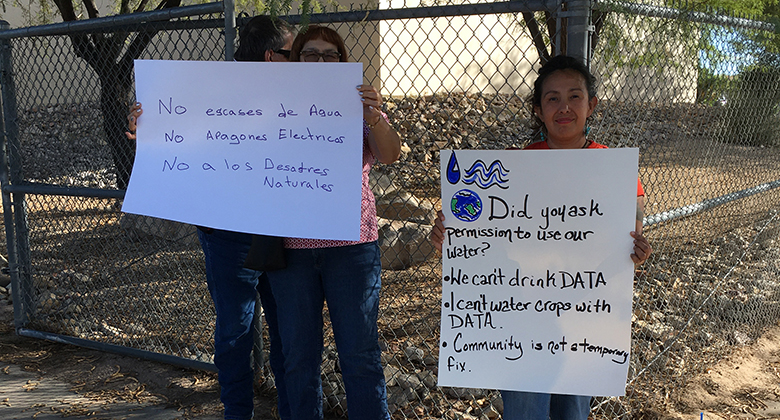 No escases de Agua
No Apagones Electricos
No a los Desastres
Naturales
Did you ask
permission to use our
water?
• We can't drink DATA
• I cant water crops with
DATA.
• Community is not a temporary
fix.